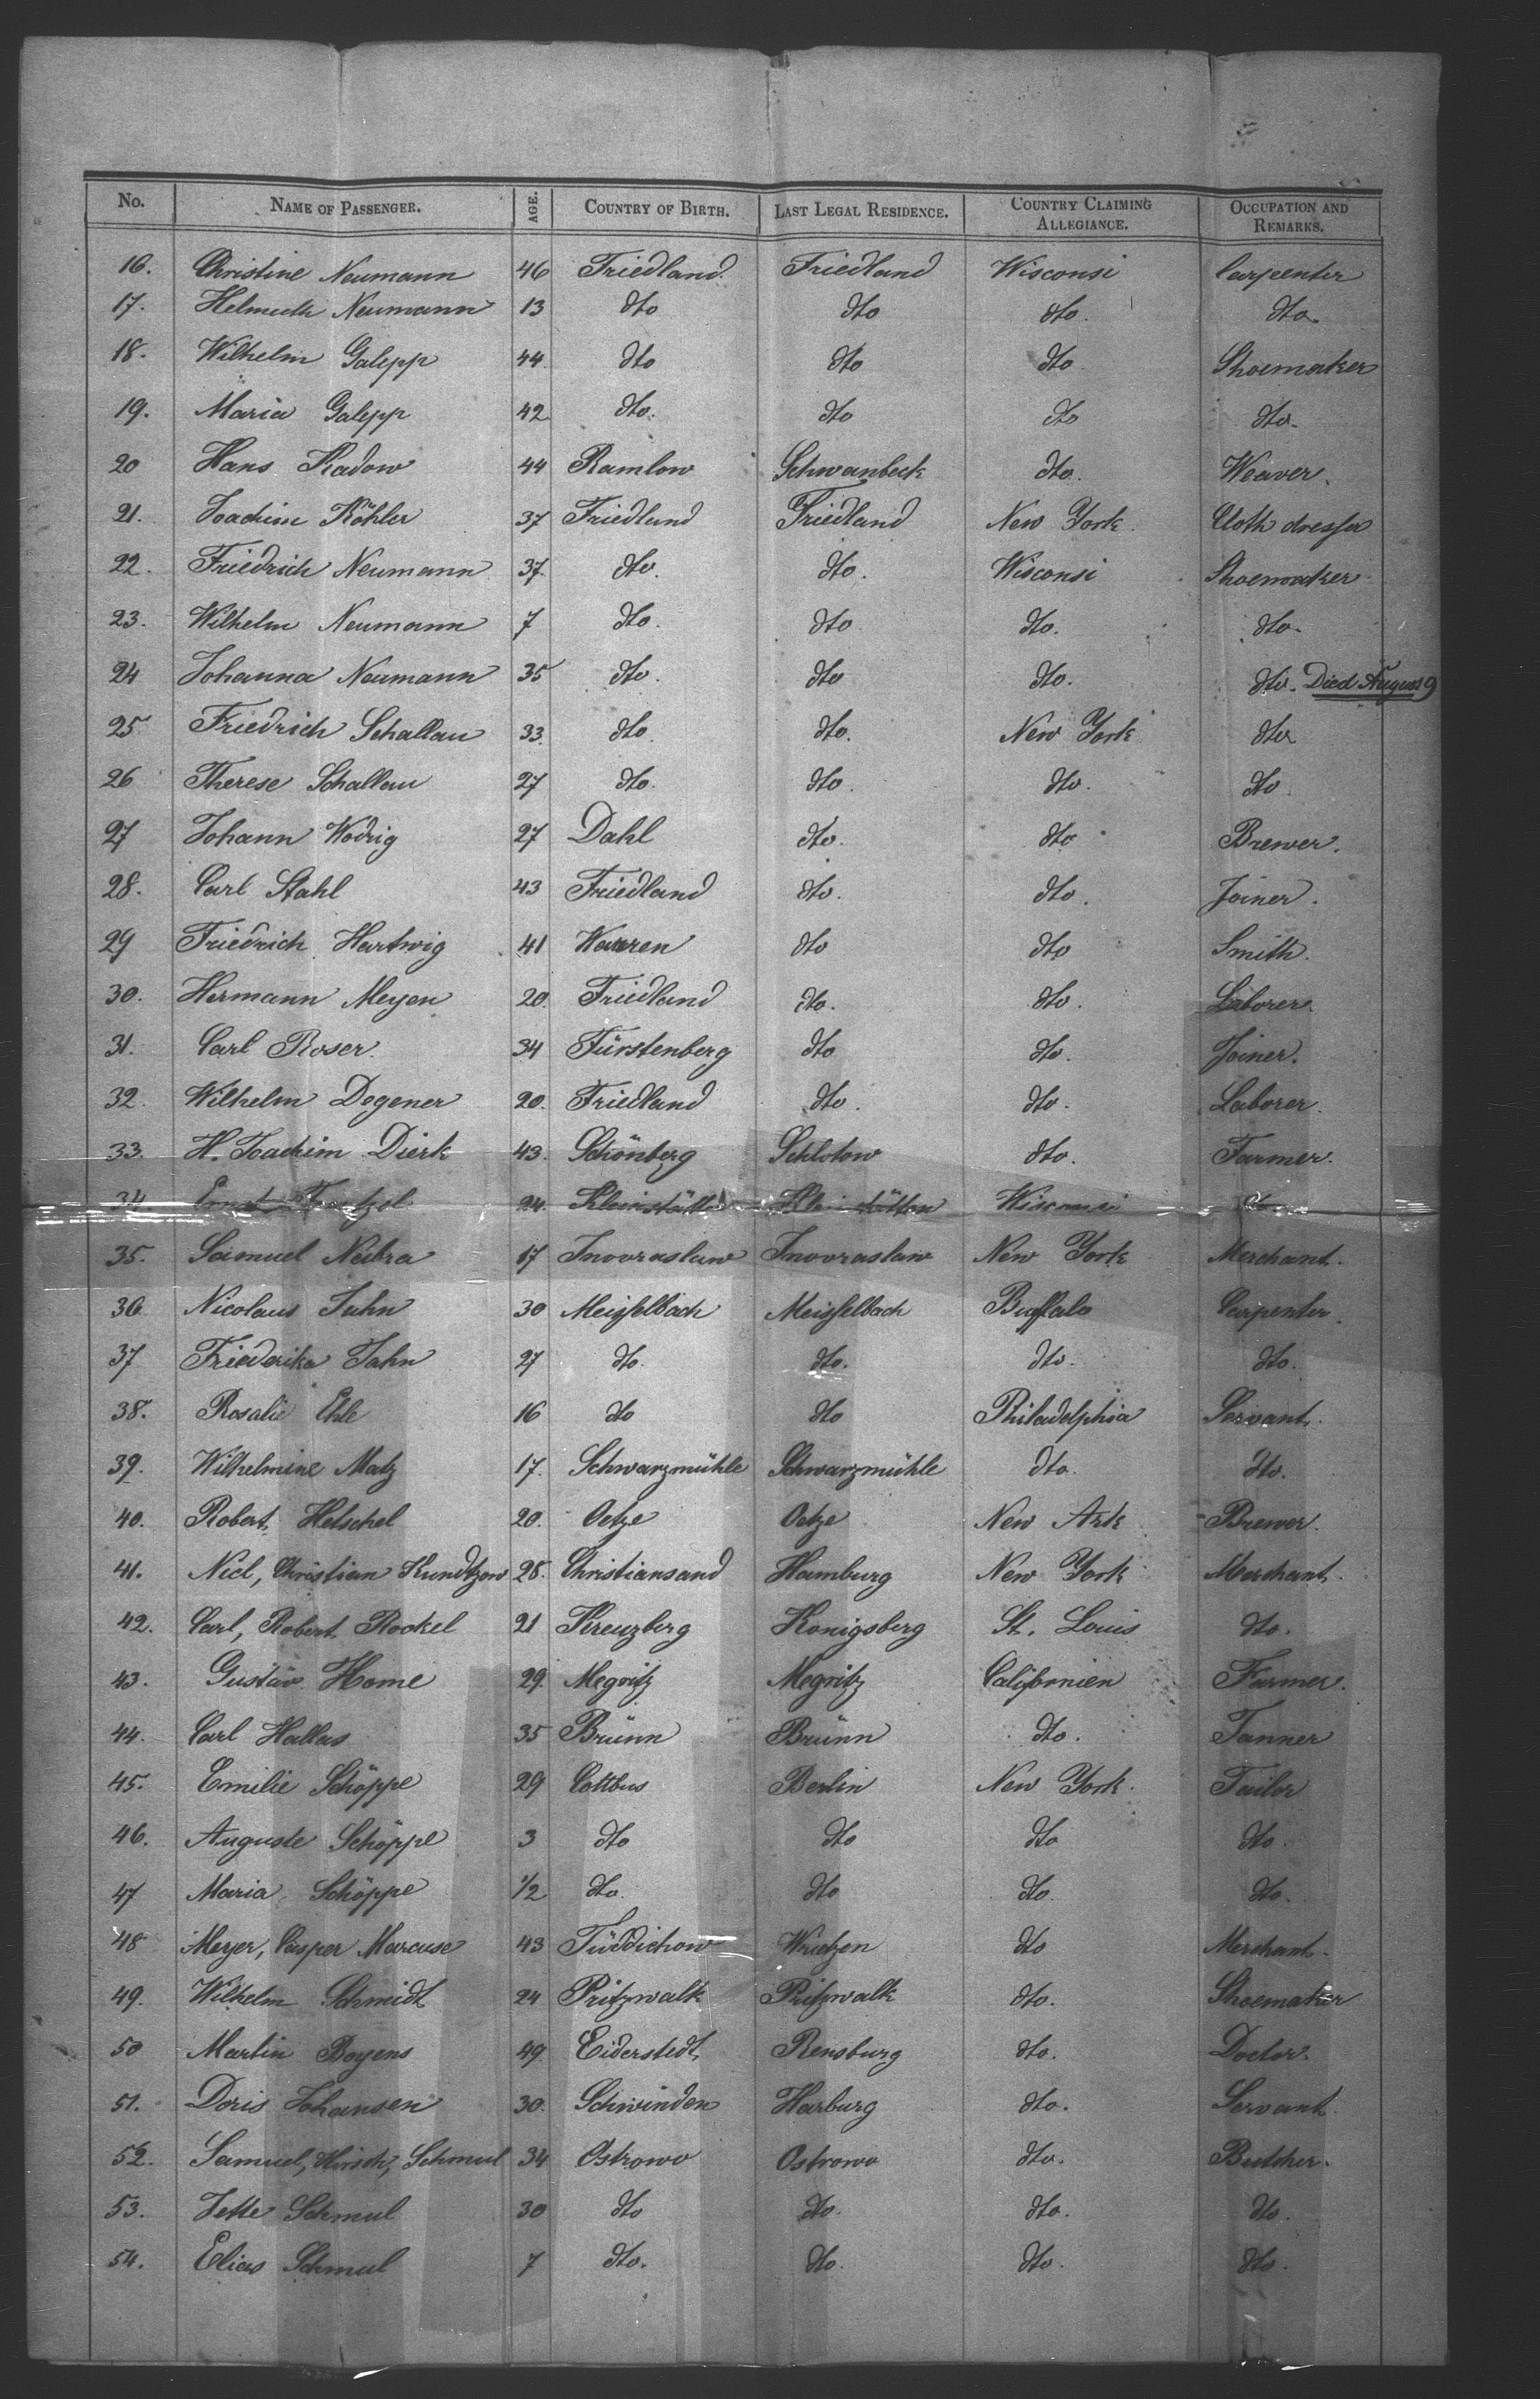 No. NAME OF PASSENGER. AGE. COUNTRY OF BIRTH. LAST LEGAL RESIDENCE. COUNTRY CLAIMING ALLEGIANCE. OCCUPATION AND REMARKS.
16. Christine Neumann 46 Friedland Friedland Wisconsi Carpenter
17. Helmuth Neumann 13 dto dto dto. dto.
18. Wilhelm Galepp 44. dto dto dto. Shoemaker
19. Maria Galepp 42 dto. dto dto dto.
20 Hans Radow 44 Ramlow Schwanbeck dto. Weaver.
21. Joachim Köhler 37 Friedland Friedland New York. Cloth dresser
22. Friedrich Neumann 37. dto. dto. Wisconsi Shoemaker
23. Wilhelm Neumann 7 dto. dto dto. dto.
24 Johanna Neumann 35 dto. dto dto. dto. Died August 9
25 Friedrich Schallau 33. dto dto. New York dto
26 Therese Schallau 27 dto. dto. dto. dto.
27 Johann Wodrig 27 Dahl dto. dto Brewer.
28. Carl Stahl 43 Friedland dto. dto. Joiner.
29 Friedrich Hartwig 41 Warren dto dto Smith.
30. Hermann Meyen 20. Friedland dto. dto. Laborer.
31. Carl Roser. 34 Fürstenberg dto dto. Joiner.
32. Wilhelm Degener 20. Friedland dto. dto. Laborer.
33. H. Joachim Dierk 43. Schönberg Schlotow dto. Farmer.
34 24. Wisconsi
35. Samuel Neutra 17 Inovraslaw Inovraslaw New York Merchant.
36 Nicolaus Jahn 30 Meisselbach Meisselbach Buffalo Carpenter.
37 Friederika Jahn 27 dto. dto. dto. dto.
38. Rosalie Ehle 16 dto dto Philadelphia Servant.
39. Wilhelmine Matz 17. Schwarzmühle Schwarzmühle dto. dto.
40. Robert Helschel 20. Oetze Oetze New Ark Brewer.
41. Nicl, Christian Kundtzow 28. Christiansand Hamburg New York Merchant.
42. Carl, Robert Rockel 21 Kreuzberg Konigsberg St. Louis dto.
43. Gustav Home 29. Megritz Megritz Californien Farmer.
44. Carl Hallas 35 Brünn Brünn dto. Tanner
45. Emilie Schöppe 29 Cottbus Berlin New York. Tailor
46. Auguste Schöppe 3 dto dto dto dto.
47 Maria Schöppe 1/2 dto. dto dto. dto.
48 Meyer, Casper Marcuse 43 Tüddichow Wrietzen dto Merchant.
49. Wilhelm Schmidt 24 Pritzwalk Pritzwalk dto. Shoemaker
50 Martin Boyens 49. Eiderstedt Rensburg dto. Doctor.
51. Doris Johansen 30. Schwinden Harburg dto. Servant
52. Samuel, Hirsch, Schmul 34 Ostrowo Ostrowo dto. Butcher.
53. Jette Schmul 30 dto dto. dto. dto.
54. Elias Schmul 7 dto. dto. dto. dto.